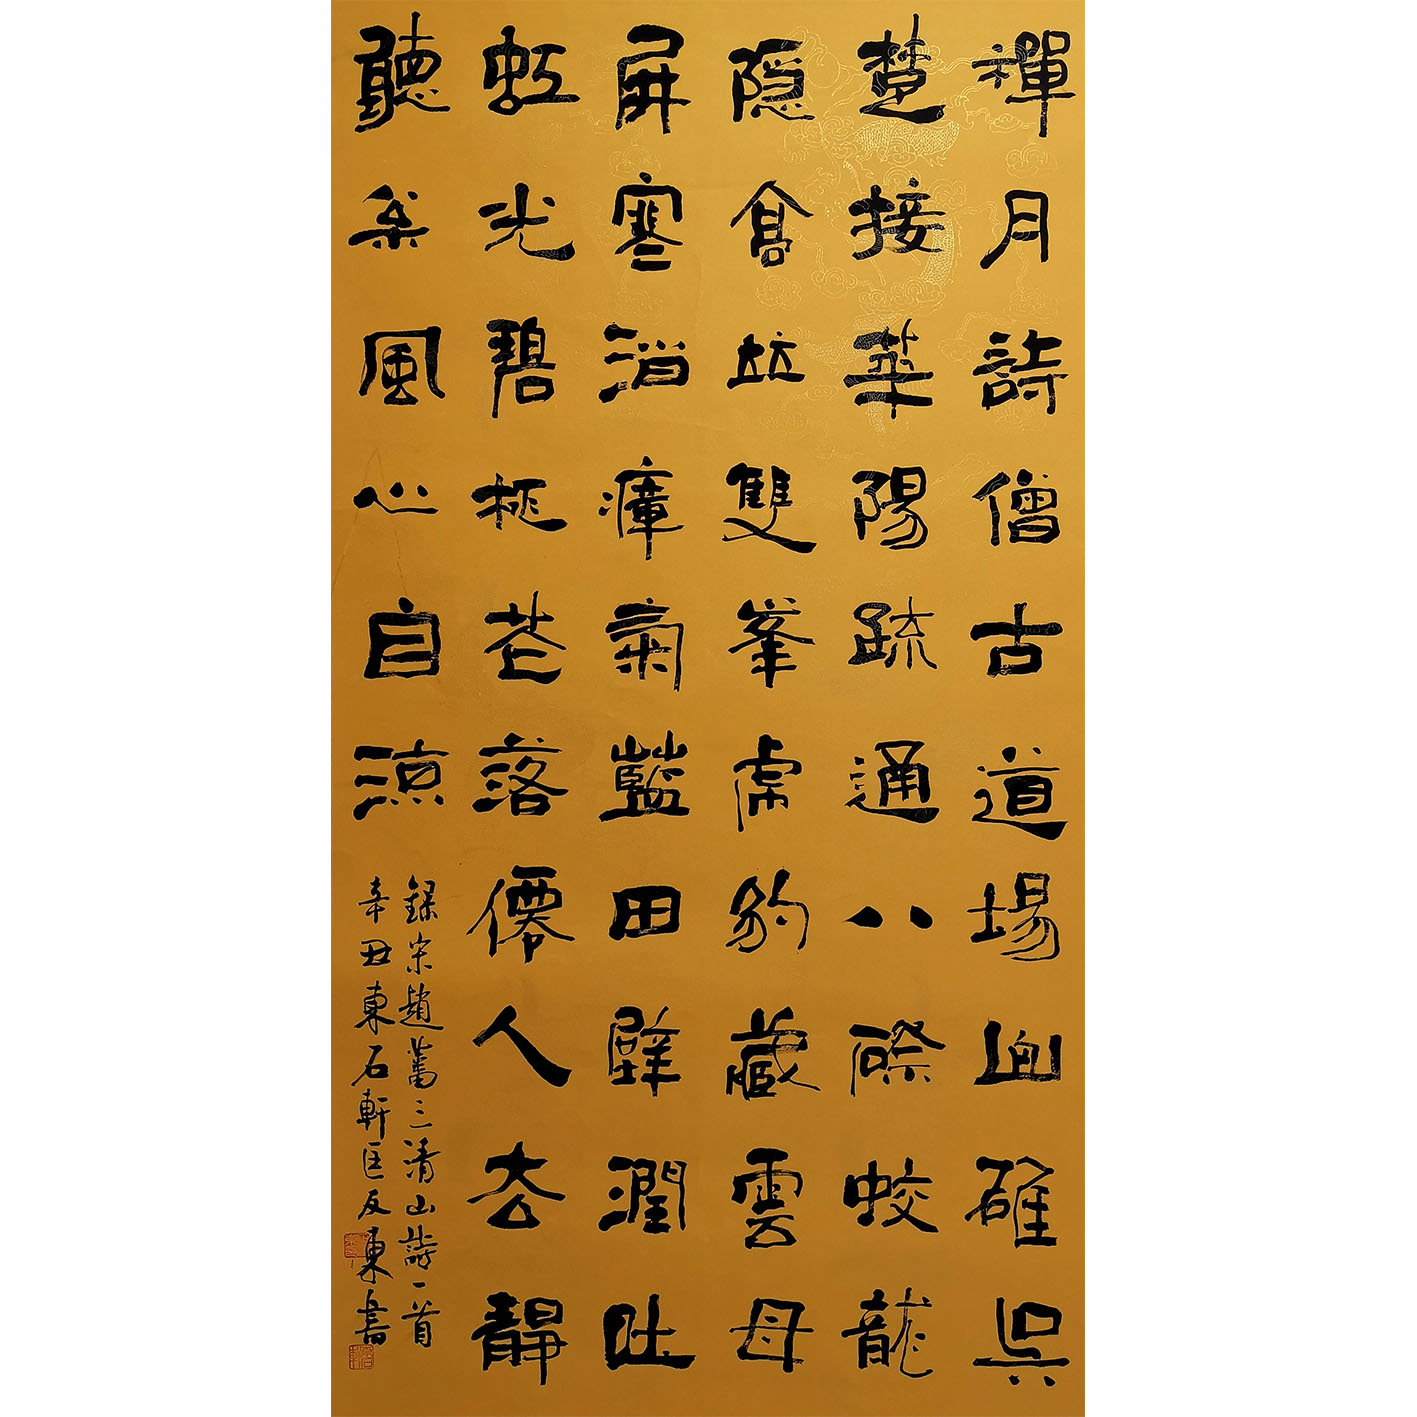 禪月詩僧古道場碓吳
楚接華陽疏通八際蛟龍
隐高並雙峯虎豹藏雲母
屏寒消瘴氣藍田璧潤吐
虹光碧桃花落僊人去靜
聽松風心自涼
錄宋趙蕃三清山詩一首
辛丑東石軒匡友東書